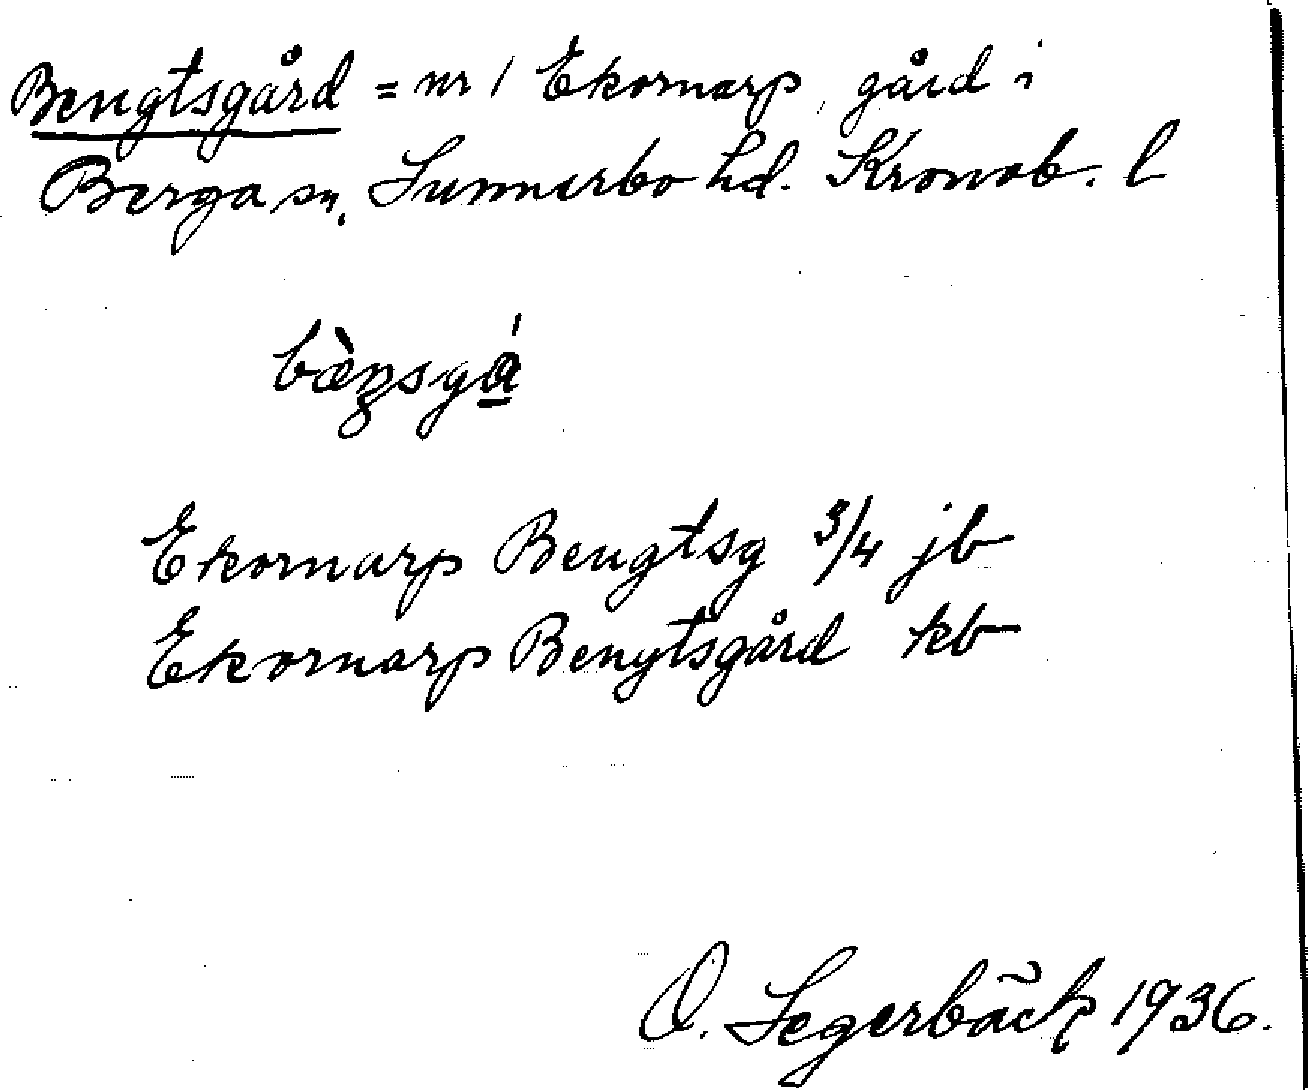 Bengtsgård = nr 1 Ekornarp, gård i
Berga sn, Sunnerbo hd. Kronob. l
bæ̀ŋsgá
Ekornarp Bengtsg 3/4 jb
Ekornarp Bengtsgård kb
O. Segerbäck 1936.